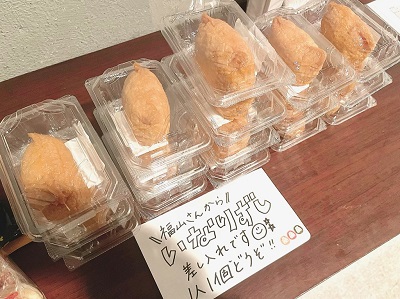 \\福山さんから//
いなりずし
差し入れです
1人1個どうぞ!!